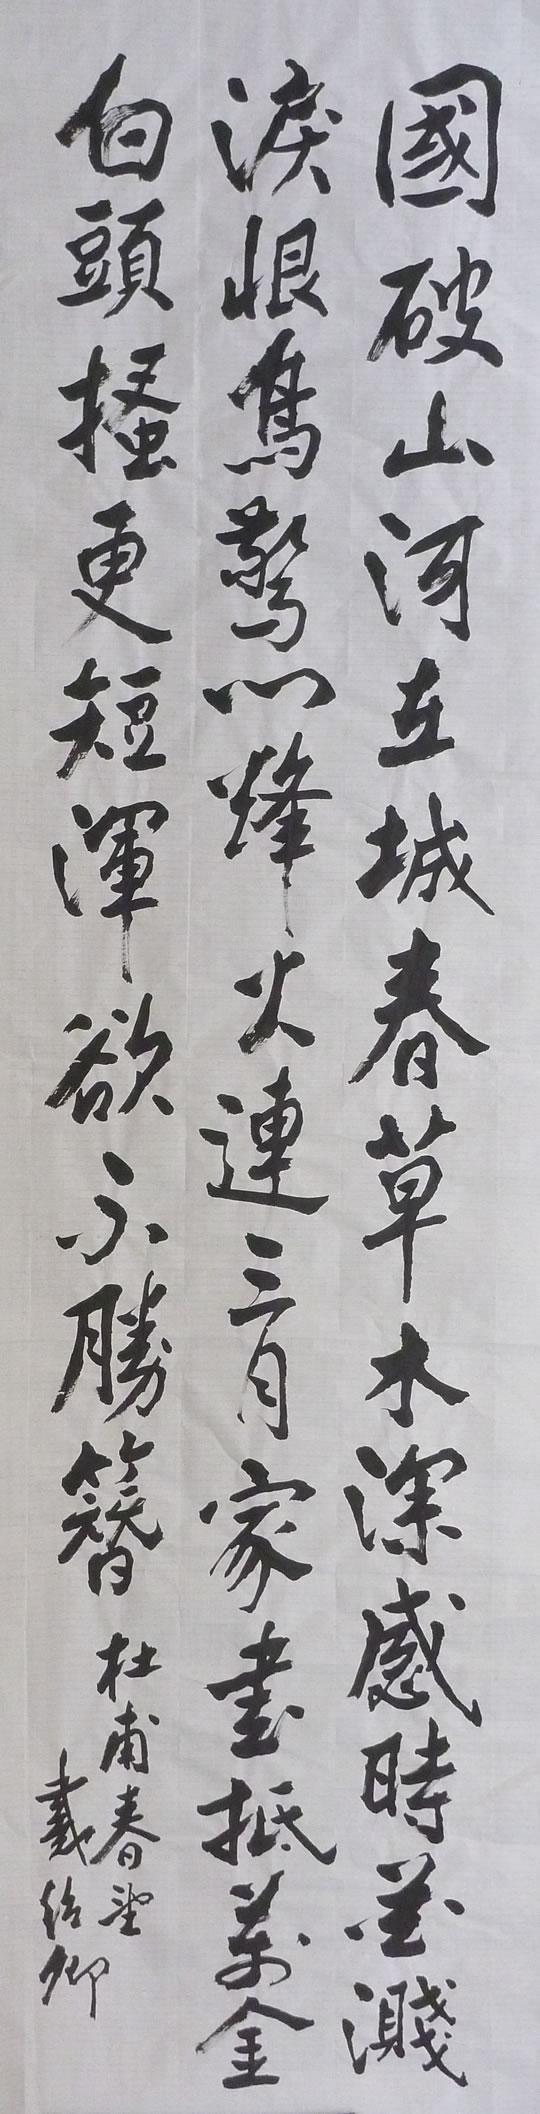 國破山河在城春草木深感時花濺
淚恨鳥驚心烽火連三月家書抵萬金
白頭搔更短渾欲不勝簪
杜甫春望
戴紹卿